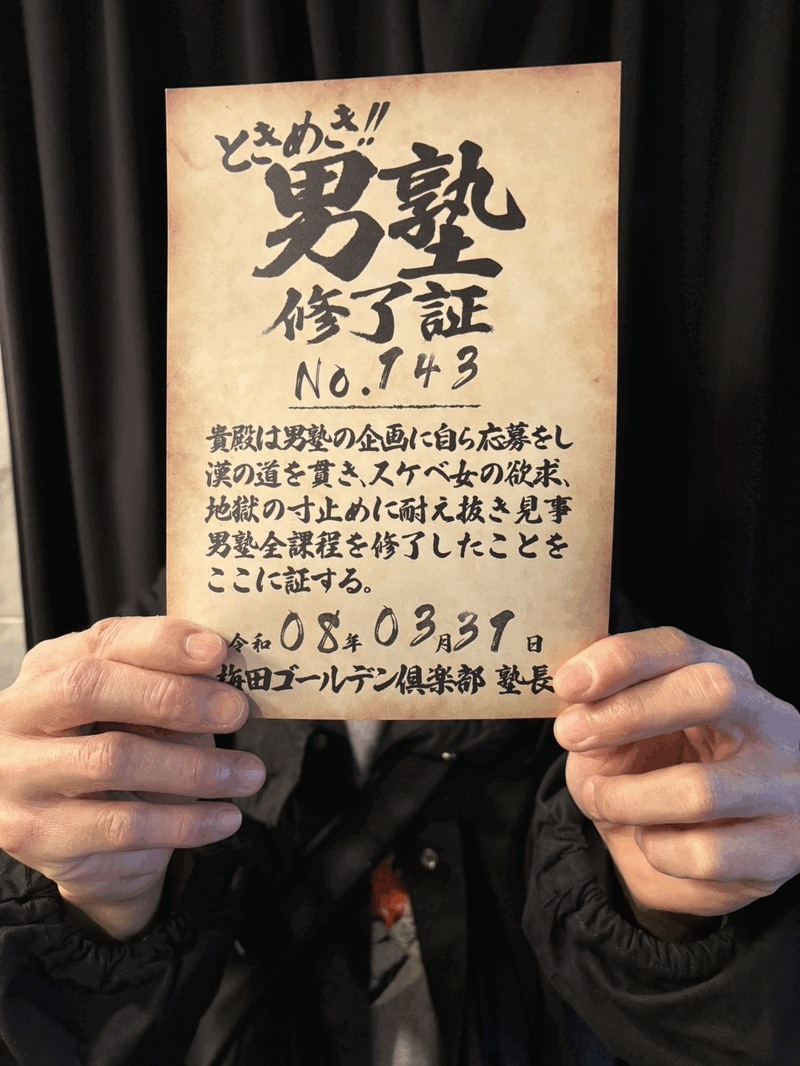 ときめき!!
男塾
修了証
No.143
貴殿は男塾の企画に自ら応募をし
漢の道を貫き、スケベ女の欲求、
地獄の寸止めに耐え抜き見事
男塾全課程を修了したことを
ここに証する。
令和08年03月31日
梅田ゴールデン倶楽部 塾長